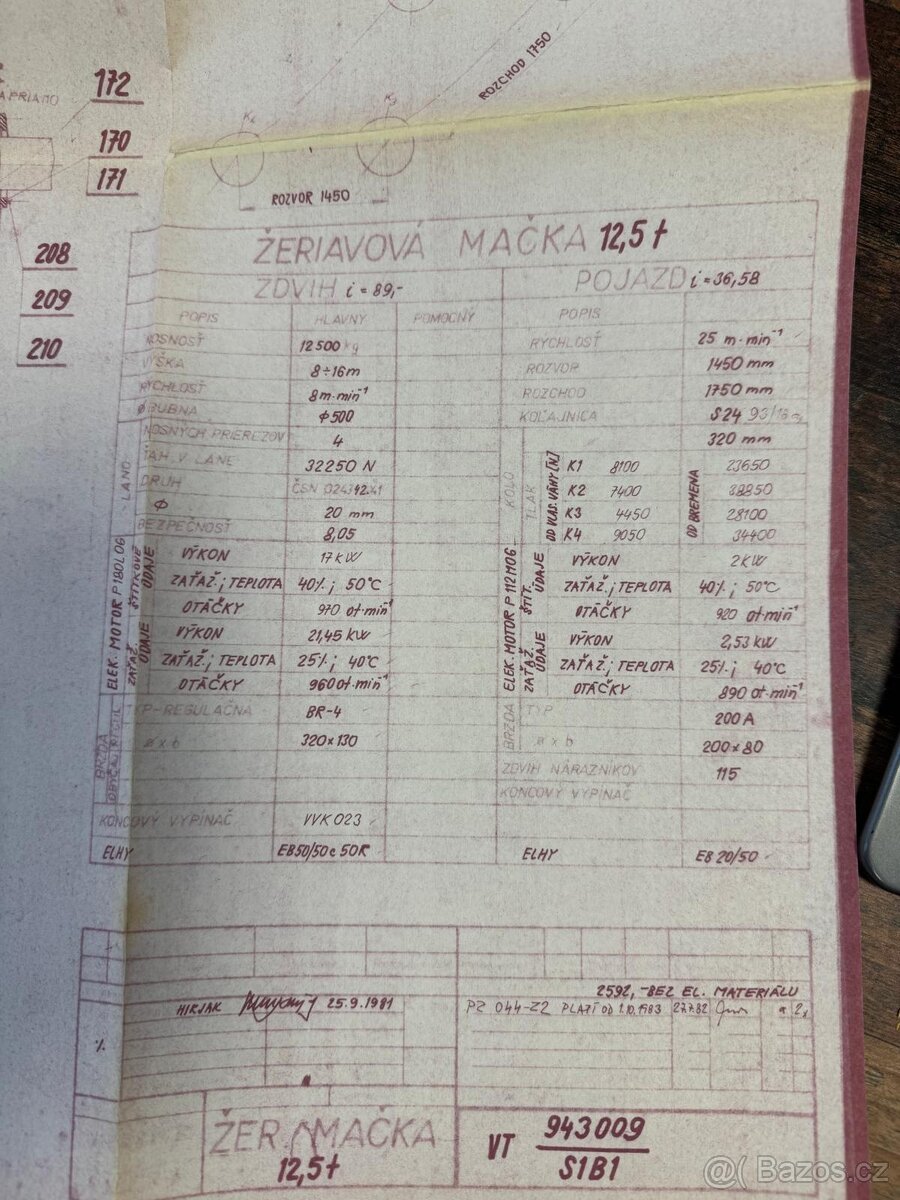 172
170
171
208
209
210
ROZCHOD 1750
ROZVOR 1450
ŽERIAVOVÁ MAČKA 12,5 t
ZDVIH i = 89,-
POJAZD i = 36,58
POPIS HLAVNÝ POMOCNÝ POPIS
NOSNOSŤ 12500 kg RÝCHLOSŤ 25 m·min⁻¹
VÝŠKA 8÷16m ROZVOR 1450 mm
RÝCHLOSŤ 8 m·min⁻¹ ROZCHOD 1750 mm
Ø BUBNA Φ500 KOĽAJNICA S24
NOSNÝCH PRIEREZOV 4 320 mm
LANO
ŤAH V LANE 32250 N
DRUH ČSN 024342.41
Φ 20 mm
BEZPEČNOSŤ 8,05
KOLO
TLAK
OD VLAS. VÁHY [N]
OD BREMENA
K1 8100 23650
K2 7400 38850
K3 4450 28100
K4 9050 34400
ELEK. MOTOR P180L06
ŠTÍTKOVÉ ÚDAJE
VÝKON 17 kW
ZAŤAŽ.; TEPLOTA 40%; 50°C
OTÁČKY 970 ot·min⁻¹
ZAŤAŽ. ÚDAJE
VÝKON 21,45 kW
ZAŤAŽ.; TEPLOTA 25%; 40°C
OTÁČKY 960 ot·min⁻¹
ELEK. MOTOR P112M06
ŠTÍT. ÚDAJE
VÝKON 2 kW
ZAŤAŽ.; TEPLOTA 40%; 50°C
OTÁČKY 920 ot·min⁻¹
ZAŤAŽ. ÚDAJE
VÝKON 2,53 kW
ZAŤAŽ.; TEPLOTA 25%; 40°C
OTÁČKY 890 ot·min⁻¹
BRZDA
TYP-REGULAČNÁ BR-4
ø x b 320×130
BRZDA
TYP 200 A
ø x b 200×80
ZDVIH NÁRAZNÍKOV 115
KONCOVÝ VYPÍNAČ
KONCOVÝ VYPÍNAČ VVK023
ELHY EB50/50c50R ELHY EB 20/50
2592,- BEZ EL. MATERIÁLU
HIRJAK 25.9.1981
PZ 044-Z2 PLATÍ OD 1.10.1983 27.7.82
ŽER. MAČKA
12,5 t
VT 943009
S1B1
@ Bazos.cz